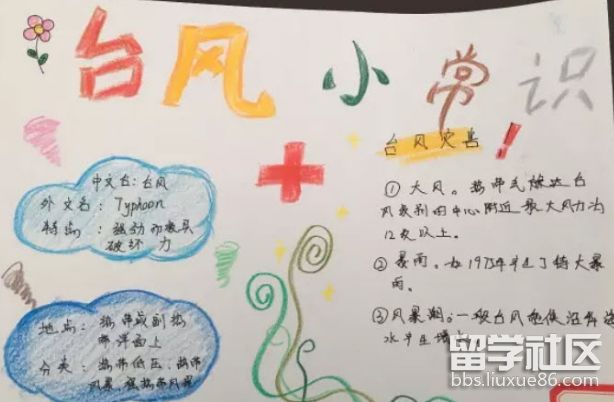 台风小常识
中文名：台风
外文名：Typhoon
特点：强劲而极具
破坏力
地点：热带或副热
带洋面上
分类：热带低压、热带
风暴 强热带风暴
台风灾害！
① 大风。热带气旋达台
风级别的中心附近最大风力为
12级以上。
② 暴雨。如1975年
特大暴
雨。
③ 风暴潮：一般台风能使沿岸
水
留学社区
bbs.liuxue86.com